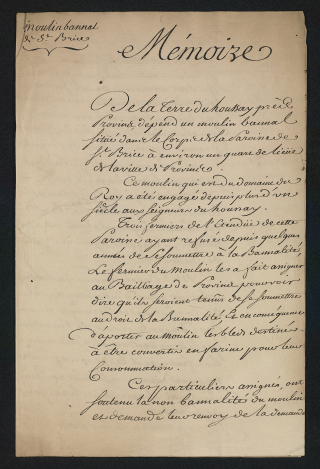 moulin bannal
de St Brice
Mémoire
De la Terre du houssay près de
Provins dépend un moulin bannal
situé dans le Corps de la Paroisse de
St Brice à environ un quart de lieüe
de la ville de Provins.
Ce moulin qui est du domaine du
Roy a été engagé depuis plus d'un
siecle aux Seigneurs du houssay.
Trois fermiers de l'étendüe de cette
Paroisse ayant refusé depuis quelques
années de se soumettre à la Bannalité,
Le fermier du Moulin les a fait assigner
au Bailliage de Provins pour voir
dire qu'ils seroient tenus de se soumettre
au droit de la Bannalité, et en consequence
d'aporter au Moulin les bleds destinés
à être convertis en farine pour leur
Consommation.
Ces particuliers assignés, ont
soutenu la non bannalité du moulin
et demandé leur renvoy de la demande